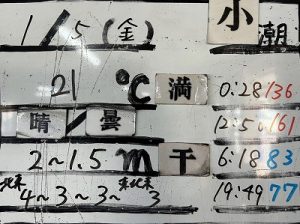 1/5(金) 小潮
21 ℃ 満 0:28 136
晴/曇 12:50 161
2~1.5m 干 6:18 83
北東 4~3~3~ 東北東 3 19:49 77